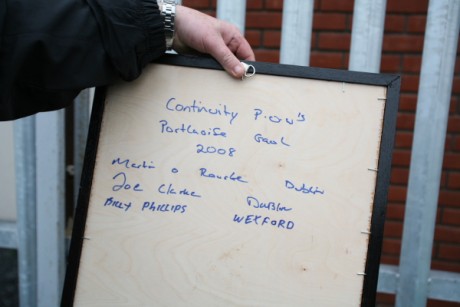 Continuity P.O.W's
Portlaoise Gaol
2008
Martin O Rourke Dublin
Joe Clarke Dublin
BILLY PHILLIPS WEXFORD